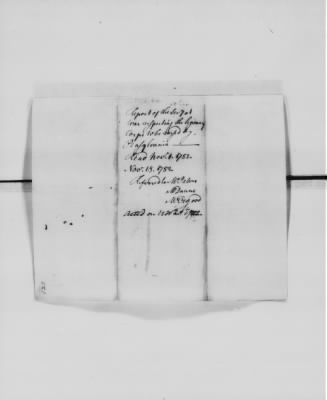 Report of the Secy at
War respecting the
Corps to be by
Pensylvania
Read Nov. 1782.
Nov. 18. 1782
Referred to Mr
Mr Duane
Mr Osgood
Acted on 1782